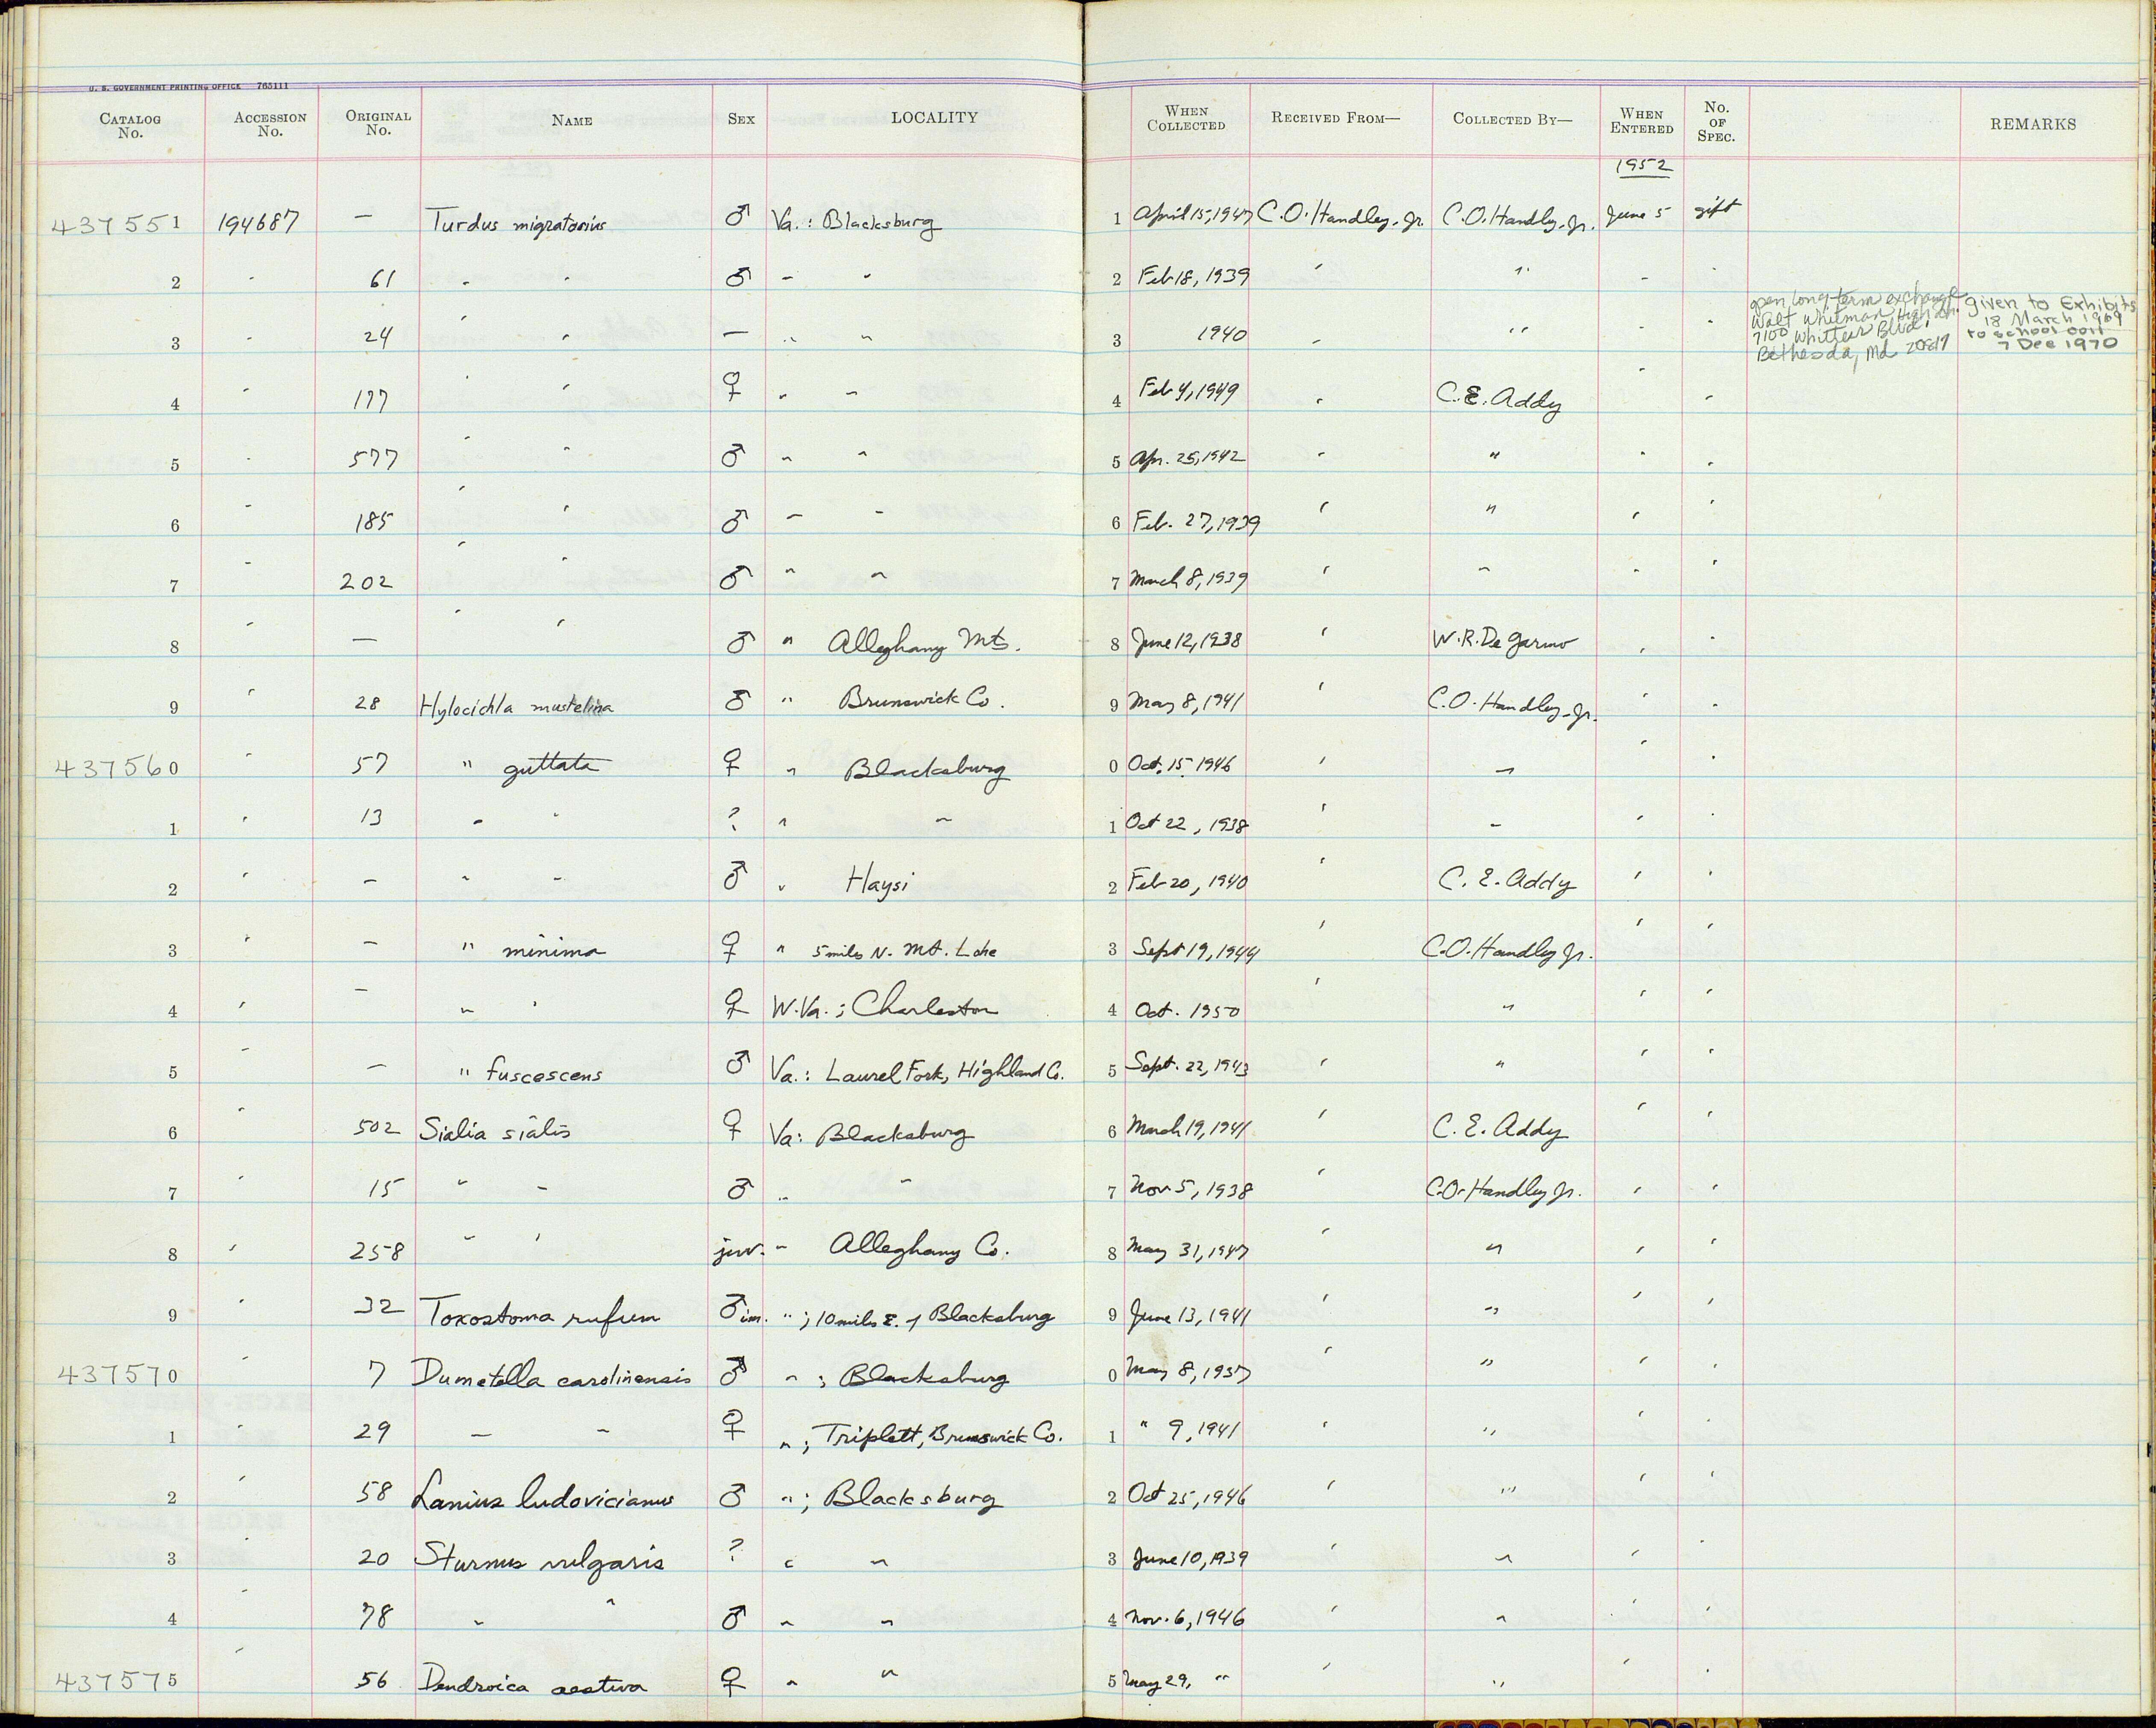 U. S. GOVERNMENT PRINTING OFFICE 765111
CATALOG No. ACCESSION No. ORIGINAL No. NAME SEX LOCALITY WHEN COLLECTED RECEIVED FROM— COLLECTED BY— WHEN ENTERED No. OF SPEC. REMARKS
1952
437551 194687 — Turdus migratorius ♂ Va.: Blacksburg 1 April 15, 1947 C.O. Handley, Jr. C.O. Handley, Jr. June 5 gift
2 " 61 " " ♂ " " 2 Feb 18, 1939 " " " "
3 " 24 " " — " " 3 1940 " " " " open, long-term exchange Walt Whitman High Sch. 7100 Whittier Blvd, Bethesda, Md 20817 given to Exhibits 18 March 1969 to school coll 7 Dec 1970
4 " 177 " " ♀ " " 4 Feb 4, 1949 " C. E. Addy " "
5 " 577 " " ♂ " " 5 Apr. 25, 1942 " " " "
6 " 185 " " ♂ " " 6 Feb. 27, 1939 " " " "
7 " 202 " " ♂ " " 7 March 8, 1939 " " " "
8 " — " " ♂ " Alleghany Mts. 8 June 12, 1938 " W.R. De Garmo " "
9 " 28 Hylocichla mustelina ♂ " Brunswick Co. 9 May 8, 1941 " C.O. Handley, Jr. " "
437560 " 57 " guttata ♀ " Blacksburg 0 Oct. 15, 1946 " " " "
1 " 13 " " ? " " 1 Oct 22, 1938 " " " "
2 " — " " ♂ " Haysi 2 Feb 20, 1940 " C. E. Addy " "
3 " — " minima ♀ " 5 miles N. Mt. Lake 3 Sept 19, 1944 " C.O. Handley Jr. " "
4 " — " " ♀ W.Va.; Charleston 4 Oct. 1950 " " " "
5 " — " fuscescens ♂ Va.: Laurel Fork, Highland Co. 5 Sept. 22, 1943 " " " "
6 " 502 Sialia sialis ♀ Va: Blacksburg 6 March 19, 1941 " C. E. Addy " "
7 " 15 " " ♂ " " 7 Nov 5, 1938 " C.O. Handley Jr. " "
8 " 258 " " juv. " Alleghany Co. 8 May 31, 1947 " " " "
9 " 32 Toxostoma rufum ♂ im. "; 10 miles E. of Blacksburg 9 June 13, 1941 " " " "
437570 " 7 Dumetella carolinensis ♂ "; Blacksburg 0 May 8, 1937 " " " "
1 " 29 " " ♀ "; Triplett, Brunswick Co. 1 " 9, 1941 " " " "
2 " 58 Lanius ludovicianus ♂ "; Blacksburg 2 Oct 25, 1946 " " " "
3 " 20 Sturnus vulgaris ? " " 3 June 10, 1939 " " " "
4 " 78 " " ♂ " " 4 Nov. 6, 1946 " " " "
437575 " 56 Dendroica aestiva ♀ " " 5 May 29, " " " " "